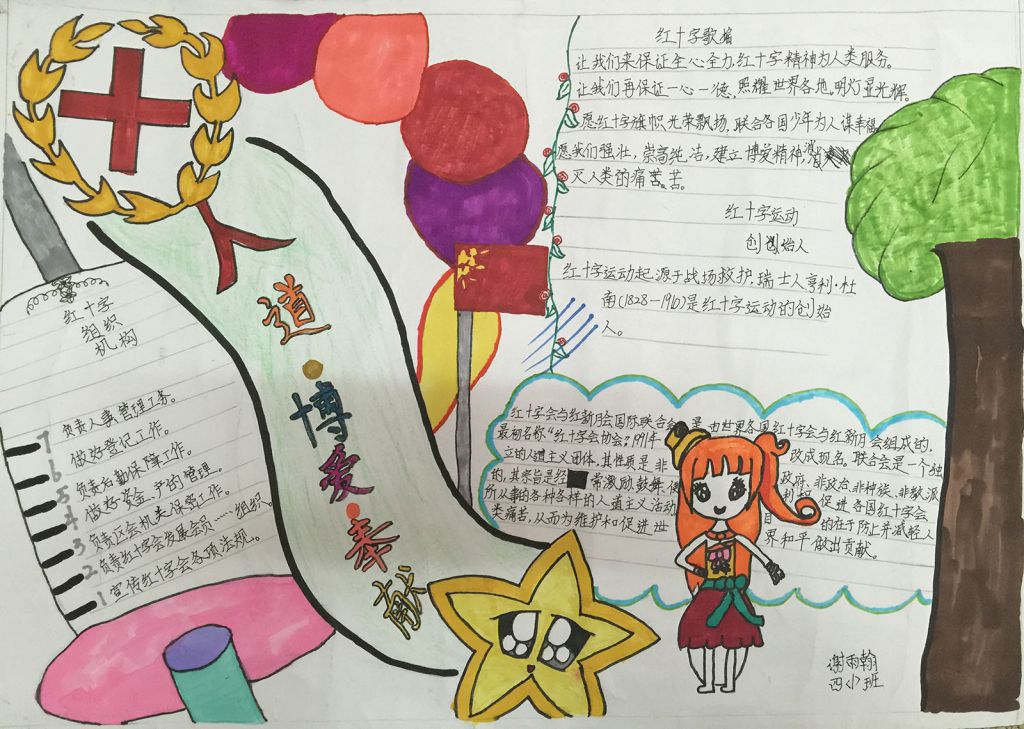 红十字歌谣
让我们来保证全心全力,红十字精神为人类服务。
让我们再保证一心一德,照耀世界各地,明灯显光辉。
愿红十字旗帜光荣飘扬,联合各国少年为人谋幸福
愿我们强壮,崇高纯洁,建立博爱精神,消
灭人类的痛苦。苦。
红十字运动
创始人
红十字运动起源于战场救护,瑞士人亨利·杜
南(1828—1910)是红十字运动的创始
人。
红十字
组织
机构
7 负责人事管理工务。
6 做好登记工作。
5 负责后勤保障工作。
4 做好资金、产的管理。
3 负责区会机关保密工作。
2 负责红十字会发展会员……组织。
1 宣传红十字会各项法规。
人道·博爱·奉献
红十字会与红新月会国际联合会 是由世界各国红十字会与红新月会组成的,
最初名称"红十字会协会",1991年 改成现名。联合会是一个独
立的人道主义团体,其性质是非 政府、非政治、非种族、非教派
的,其宗旨是经 常激励、鼓舞、便 利和促进各国红十字会
所从事的各种各样的人道主义活动 目 的在于防止并减轻人
类痛苦,从而为维护和促进世 界和平做出贡献。
谢雨翰
四小班